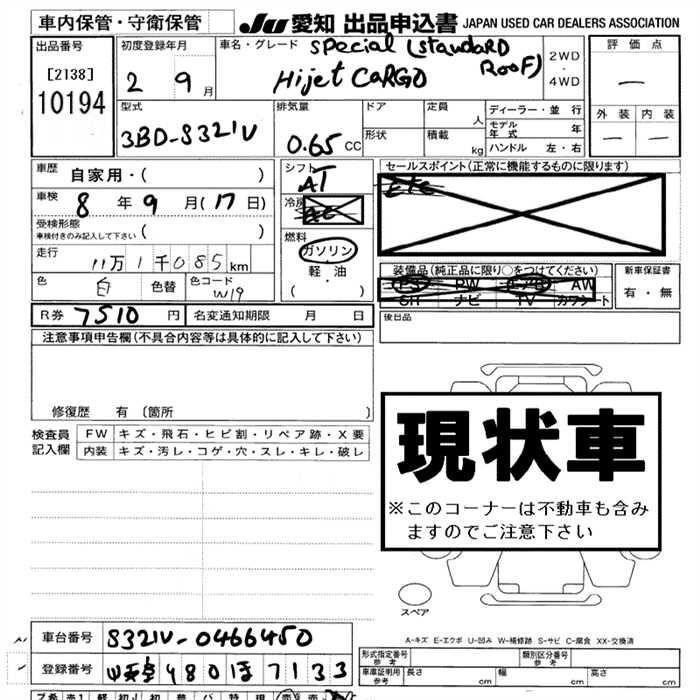 車内保管・守衛保管 JU 愛知 出品申込書 JAPAN USED CAR DEALERS ASSOCIATION
出品番号 [2138] 10194
初度登録年月 2 9月
車名・グレード Special (Standard Roof)
Hijet Cargo
2WD・4WD
評価点 ー
外装 内装
ー ー
型式 3BD-S321V
排気量 0.65 CC
ドア 形状
定員 人
積載 kg
ディーラー・並行
モデル年式 年
ハンドル 左・右
車歴 自家用・( )
車検 8年9月(17日)
受検形態
車検付きのみ記入して下さい ( )
走行 11万1千085km
色 白 色替 色コード W19
シフト AT
冷房 AC
燃料 ガソリン
軽・油
・( )
セールスポイント(正常に機能するものに限ります)
etc
装備品(純正品に限り○をつけてください)
PS PW エアB AW
SR ナビ TV カワシート
新車保証書
有・無
R券 7510 円 名変通知期限 月 日
後日品
注意事項申告欄(不具合内容等は具体的に記入して下さい)
修復歴 有 〔箇所 〕
検査員記入欄
FW キズ・飛石・ヒビ割・リペア跡・X要
内装 キズ・汚レ・コゲ・穴・スレ・キレ・破レ
現状車
※このコーナーは不動車も含みますのでご注意下さい
スペア
A-キズ E-エクボ U-凹み W-補修跡 S-サビ C-腐食 XX-交換済
車台番号 S321V-0466450
登録番号 480 ほ 7133
形式指定番号 参考
類別区分番号 参考
車庫証明用 参考 長さ cm 幅 cm 高さ cm